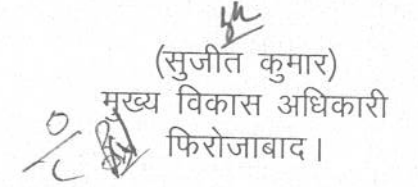 (सुजीत कुमार)
मुख्य विकास अधिकारी
O/C फिरोजाबाद।